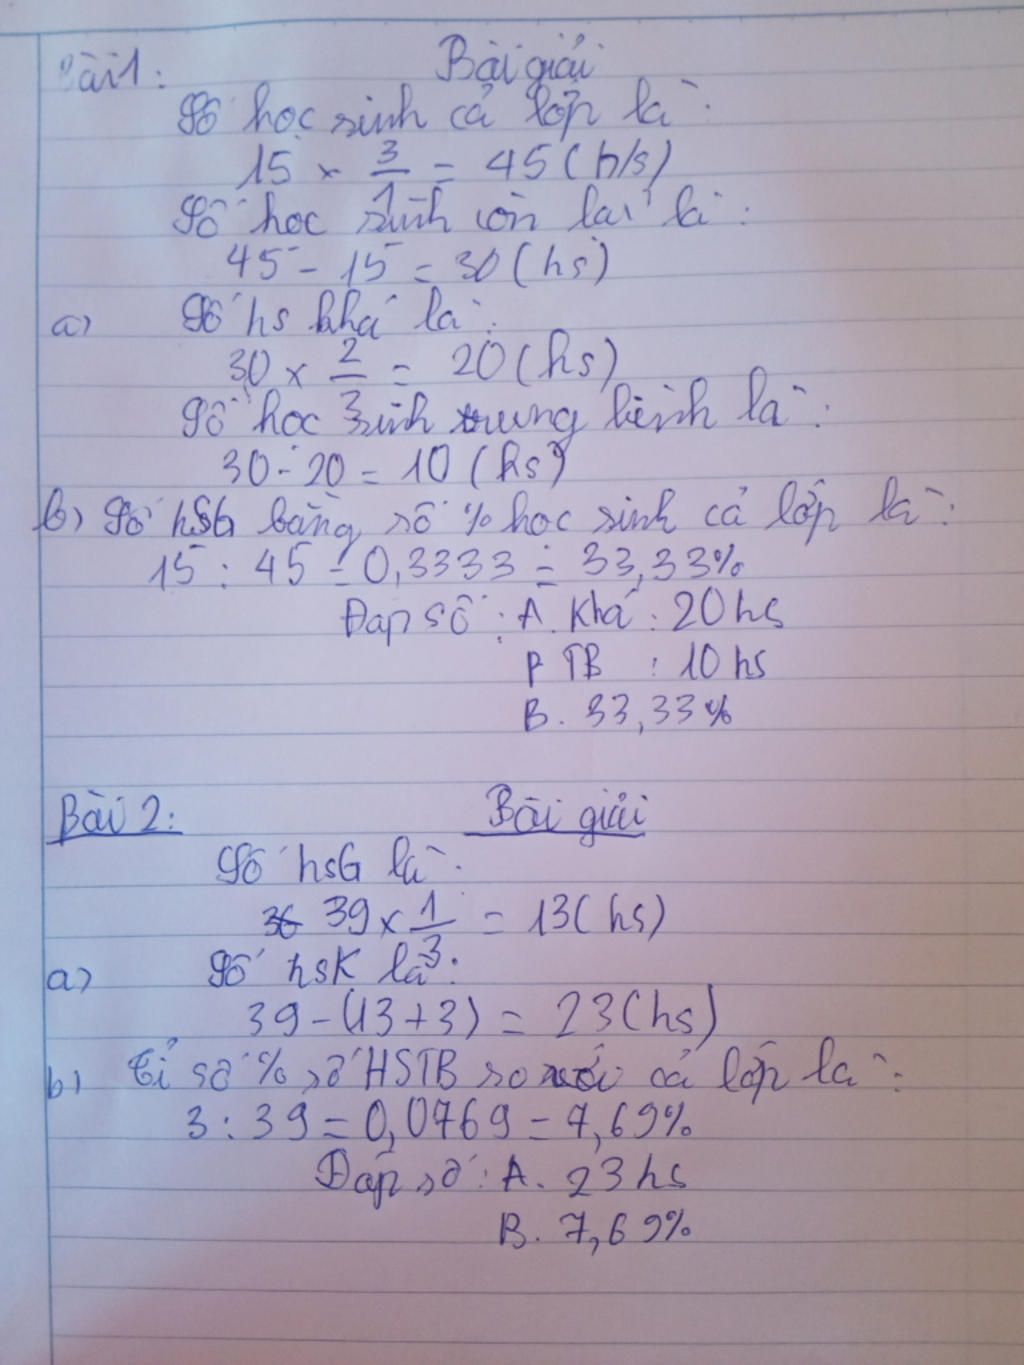 Bài 1: Bài giải
Số học sinh cả lớp là:
15 × 3/1 = 45 (h/s)
Số học sinh còn lại là:
45 - 15 = 30 (hs)
a) Số hs khá là:
30 × 2/3 = 20 (hs)
Số học sinh trung bình là:
30 - 20 = 10 (hs)
b) Số hSG bằng số % học sinh cả lớp là:
15 : 45 = 0,3333 = 33,33%
Đap số: A. Khá : 20 hs
TB : 10 hs
B. 33,33%
Bài 2: Bài giải
Số hsG là:
39 × 1/3 = 13 (hs)
a) Số hsK là:
39 - (13 + 3) = 23 (hs)
b) Tỉ số % số HSTB so với cả lớp là:
3 : 39 = 0,0769 = 7,69%
Đáp số: A. 23 hs
B. 7,69%